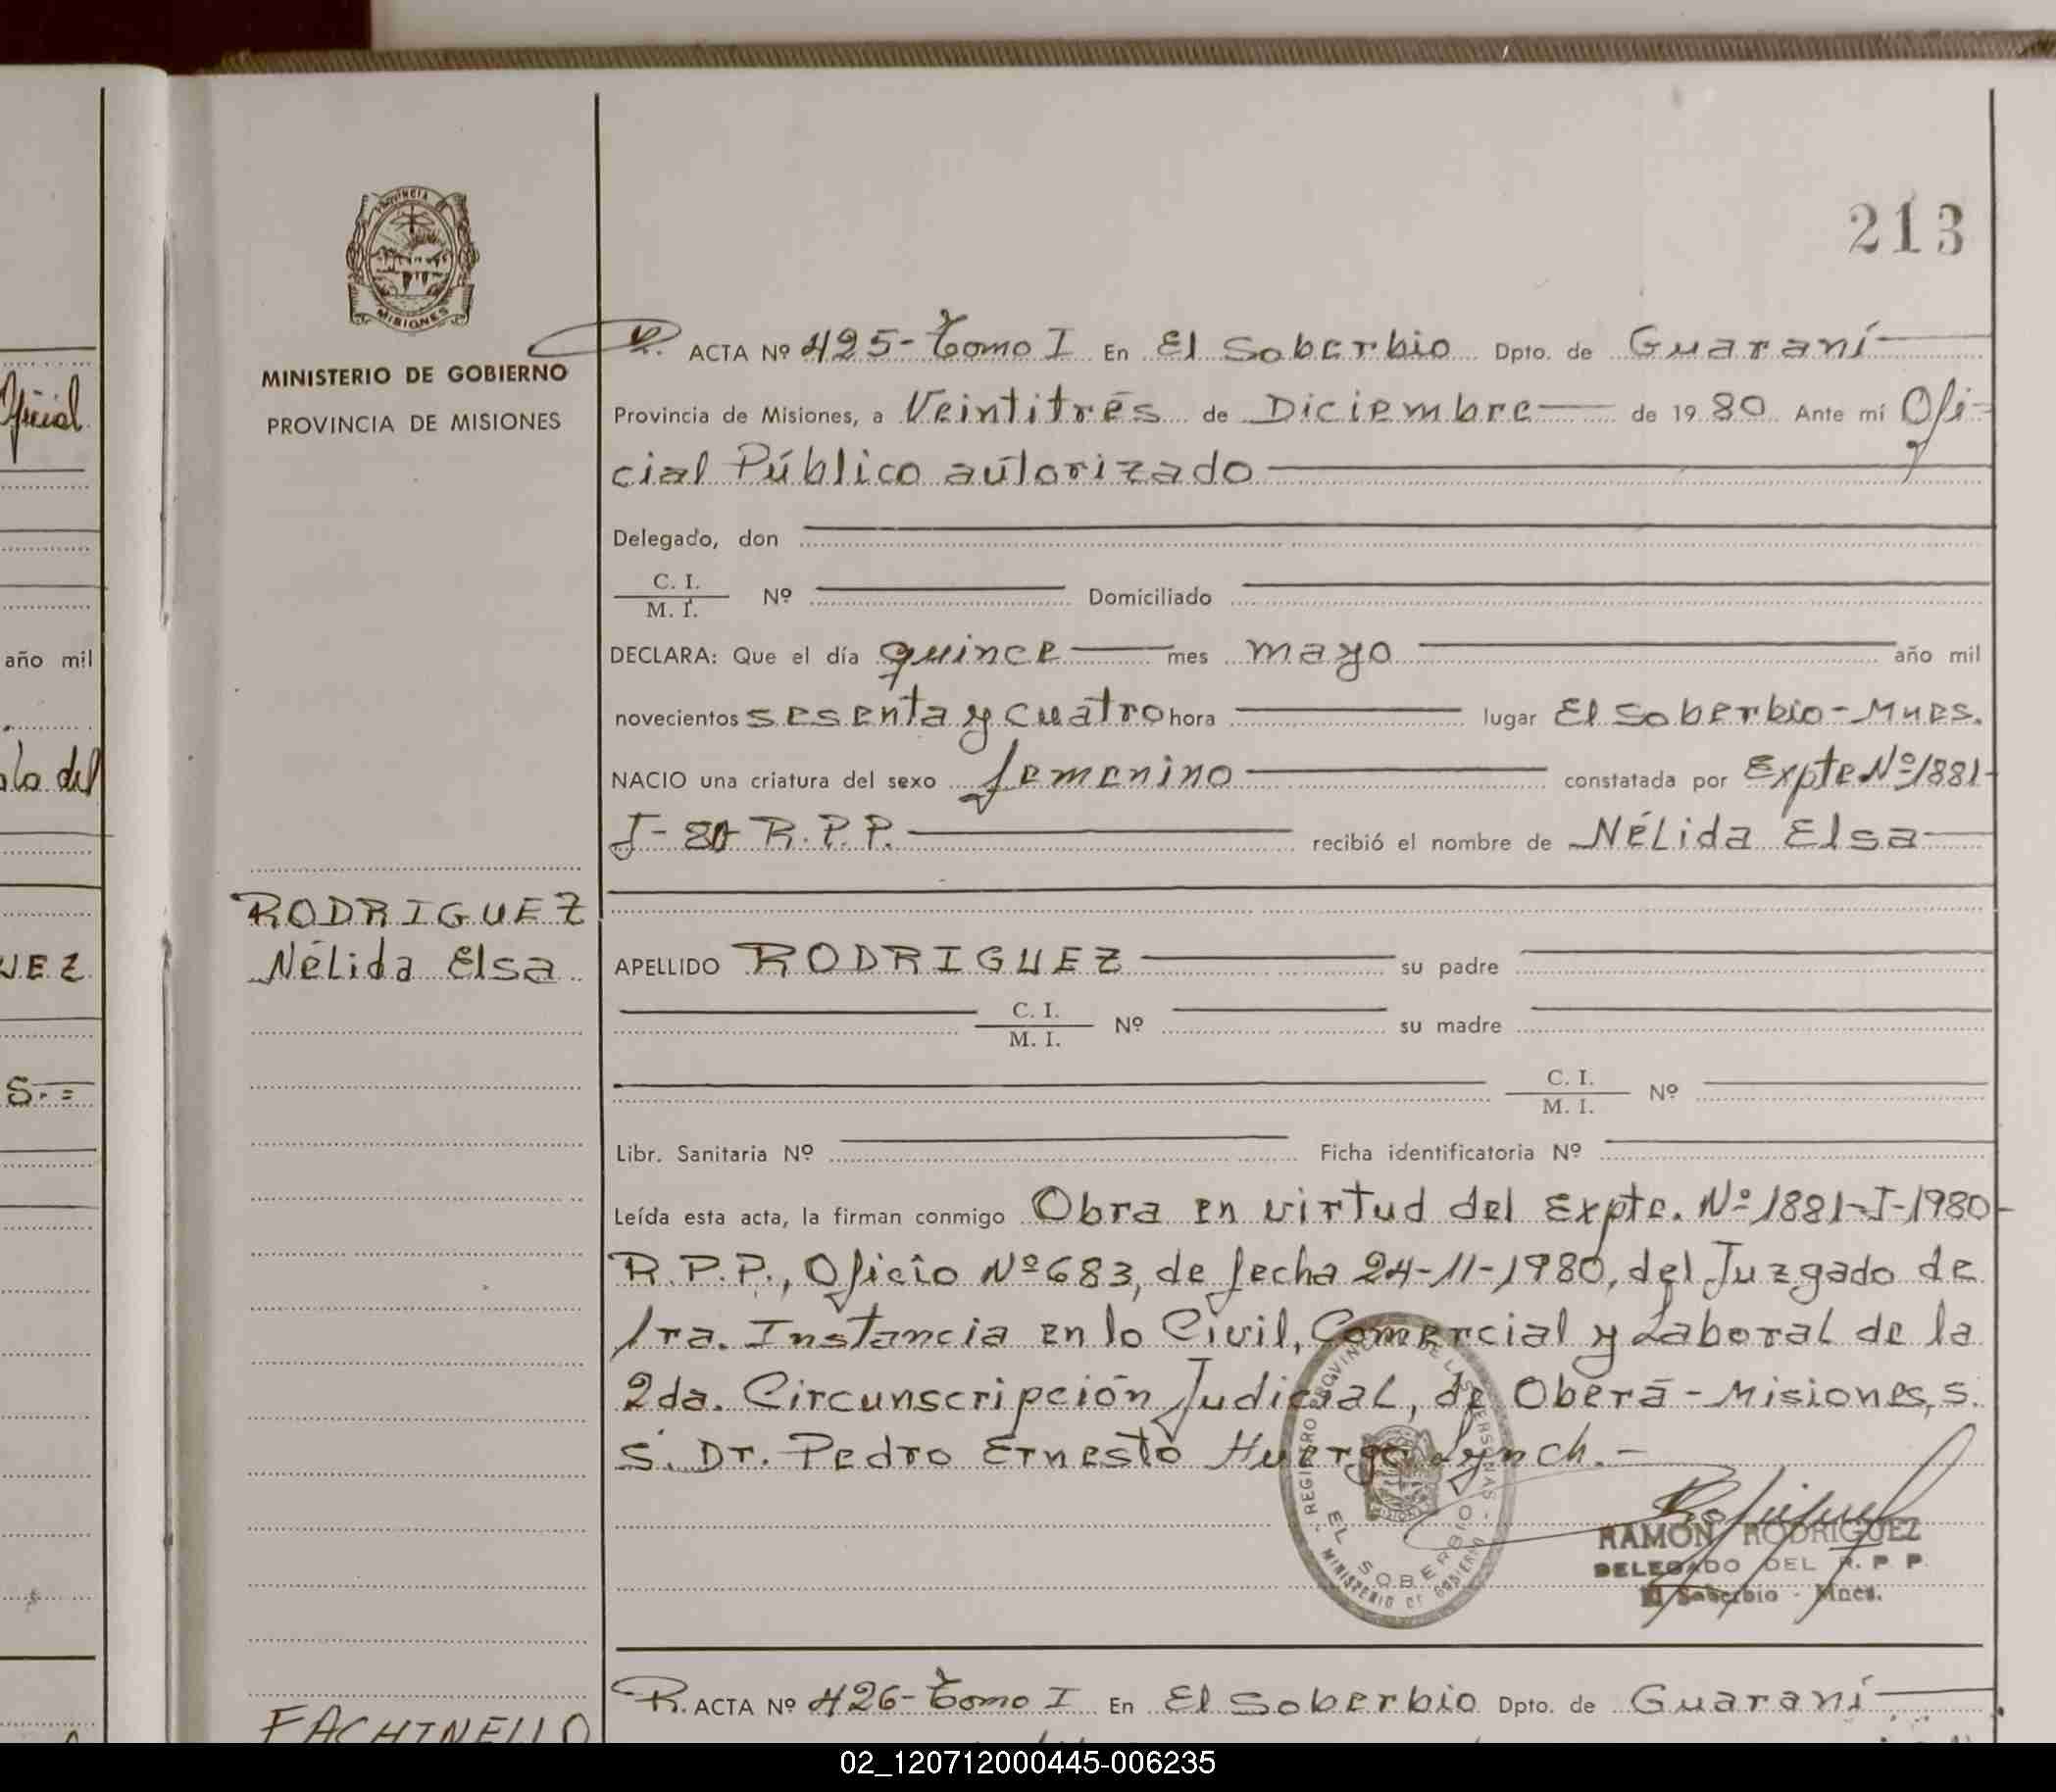 213
PROVINCIA DE
MISIONES
MINISTERIO DE GOBIERNO
PROVINCIA DE MISIONES
R. ACTA Nº 425-Tomo I En El Soberbio Dpto. de Guaraní
Provincia de Misiones, a Veintitrés de Diciembre de 1980 Ante mí Ofi-
cial Público autorizado
Delegado, don
C. I.
M. I. Nº Domiciliado
DECLARA: Que el día quince mes mayo año mil
novecientos sesenta y cuatro hora lugar El Soberbio-Mnes.
NACIO una criatura del sexo femenino constatada por Expte Nº 1881-
I-80 R.P.P. recibió el nombre de Nélida Elsa
RODRIGUEZ
Nélida Elsa
APELLIDO RODRIGUEZ su padre
C. I.
M. I. Nº su madre
C. I.
M. I. Nº
Libr. Sanitaria Nº Ficha identificatoria Nº
Leída esta acta, la firman conmigo Obra en virtud del Expte. Nº 1881-I-1980-
R.P.P., Oficio Nº 683, de fecha 24-11-1980, del Juzgado de
1ra. Instancia en lo Civil, Comercial y Laboral de la
2da. Circunscripción Judicial, de Oberá-Misiones, S.
S. Dr. Pedro Ernesto Huergo Lynch.-
REGISTRO PROVINCIAL DE LAS PERSONAS
EL SOBERBIO
MINISTERIO DE GOBIERNO
RAMON RODRIGUEZ
DELEGADO DEL R. P. P.
El Soberbio - Mnes.
R. ACTA Nº 426-Tomo I En El Soberbio Dpto. de Guaraní
FACHINELLO
Oficial
año mil
del
UEZ
S.=
02_120712000445-006235